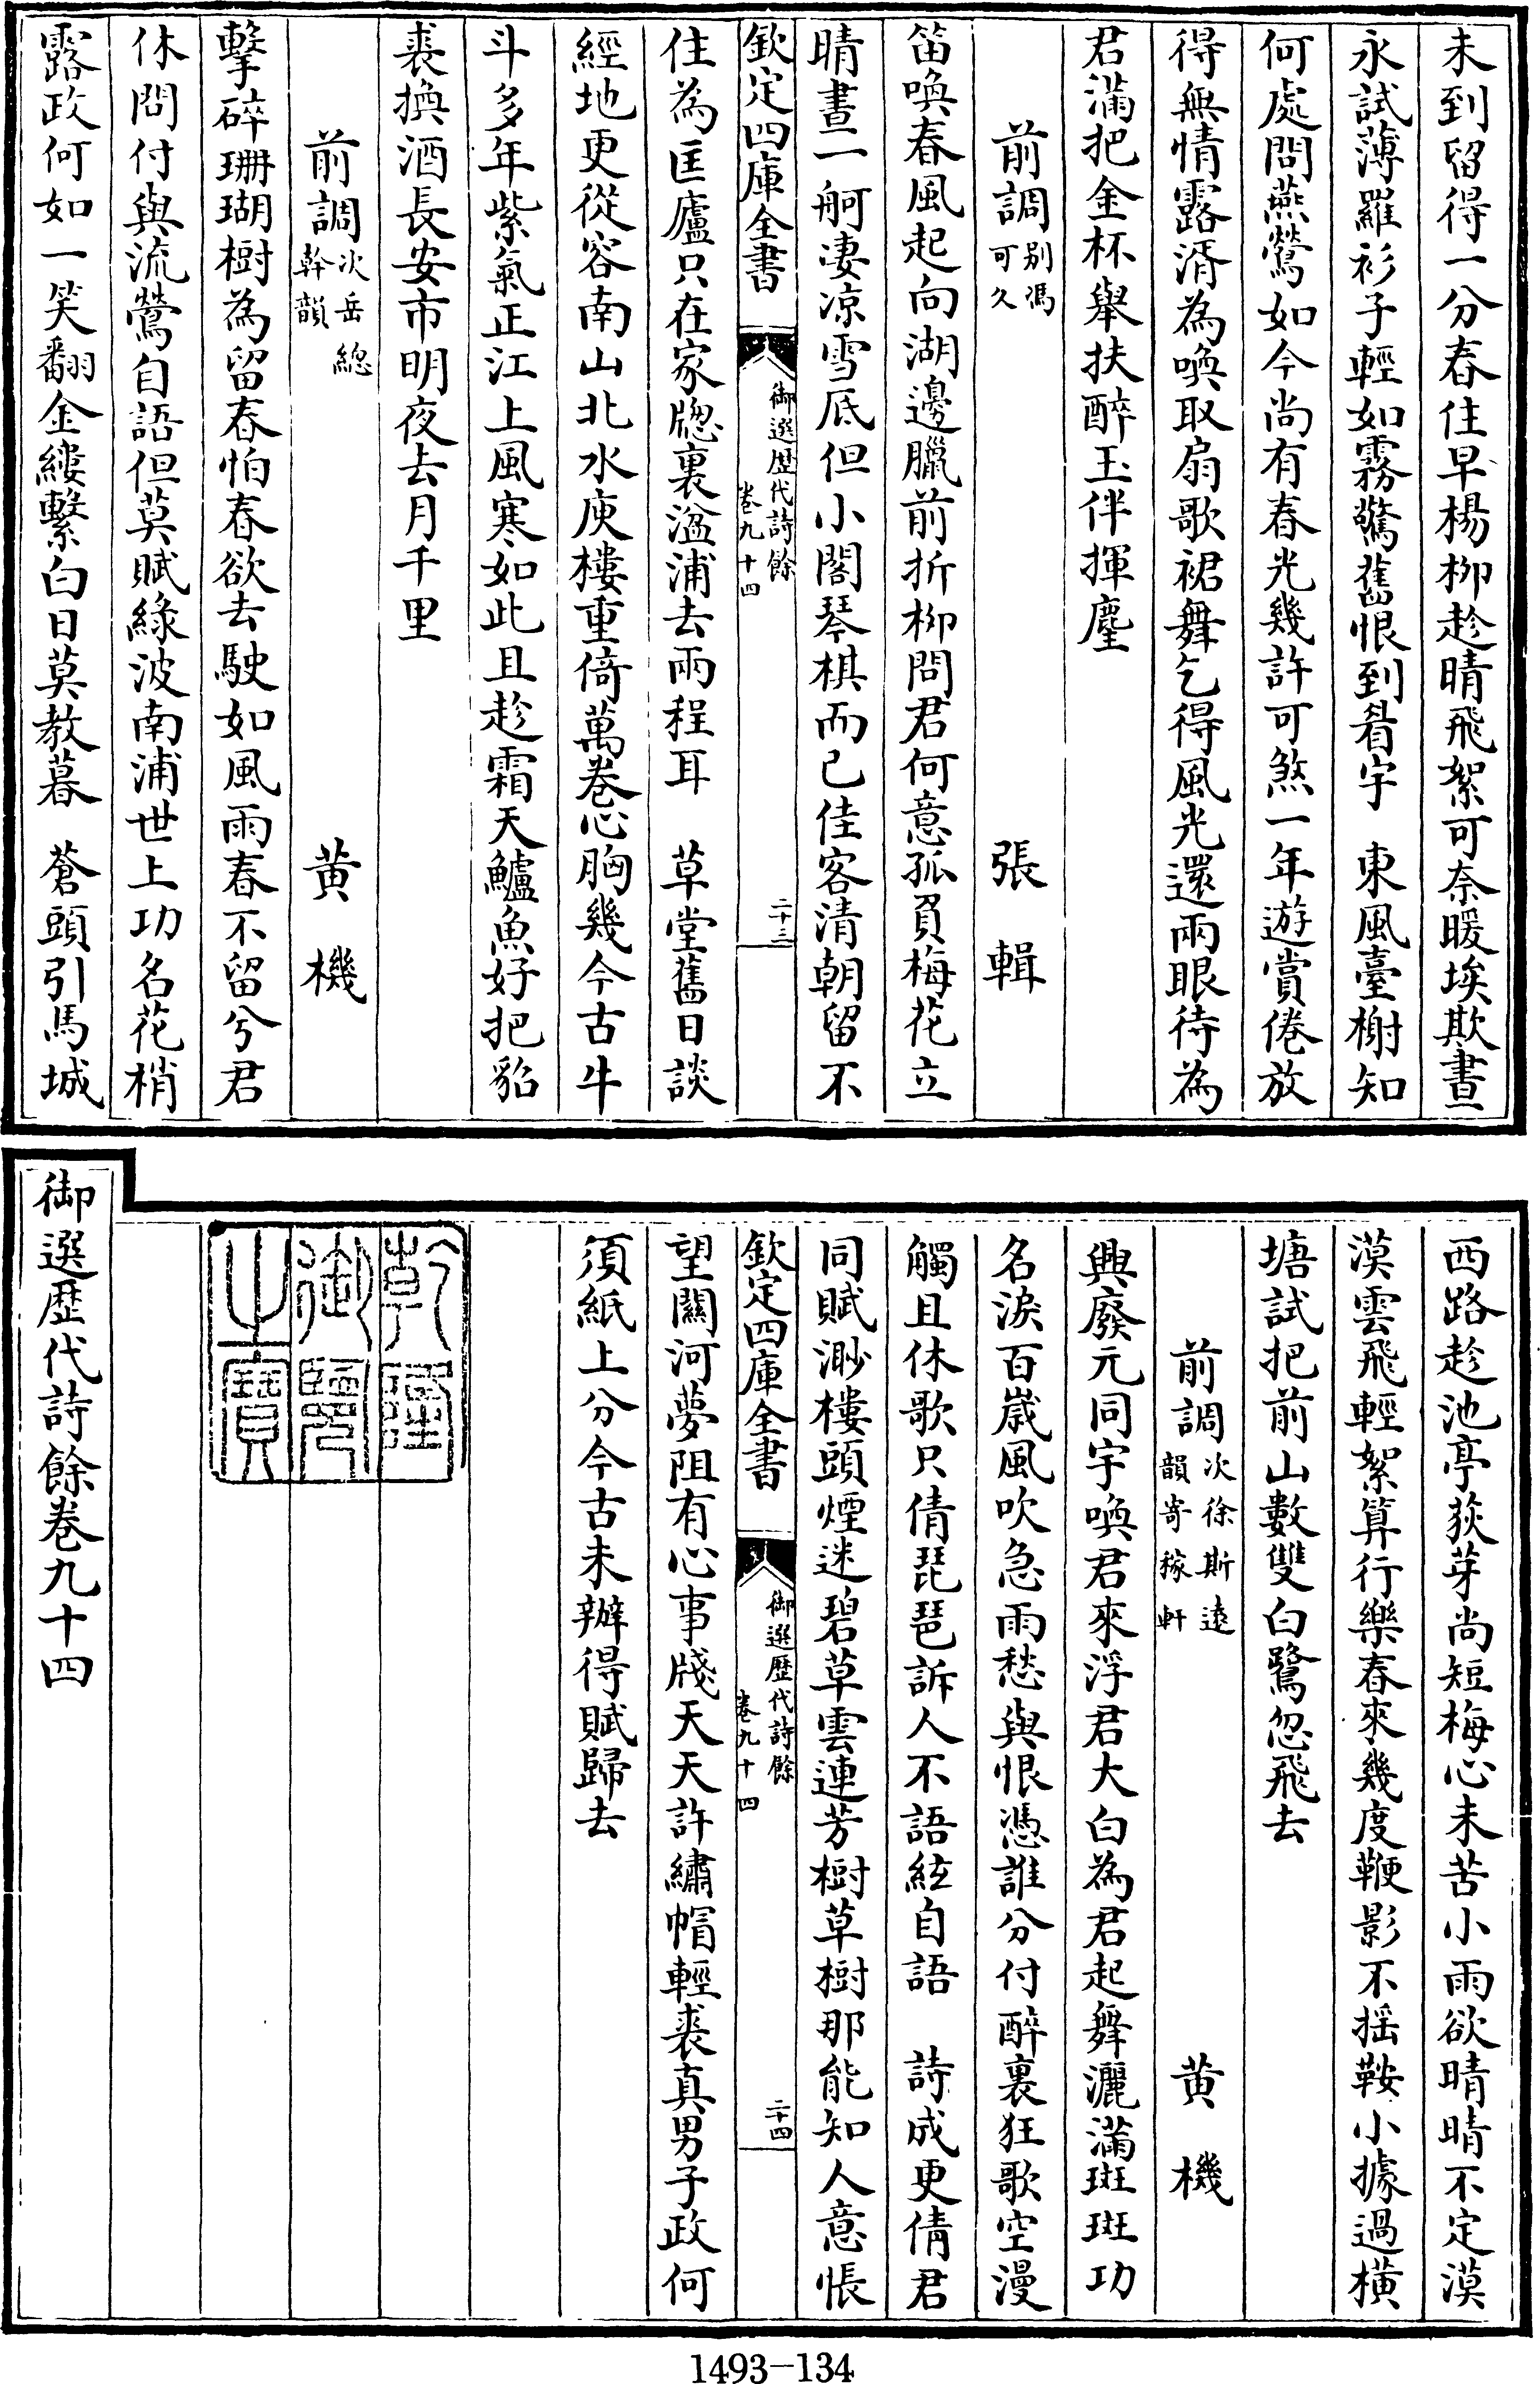 未到留得一分春住早楊柳趁晴飛絮可奈暖埃欺晝
永試薄羅衫子輕如霧驚舊恨到眉宇　東風臺榭知
何處問燕鶯如今尚有春光幾許可煞一年遊賞倦放
得無情露湑為喚取扇歌裙舞乞得風光還兩眼待為
君滿把金杯舉扶醉玉伴揮麈
前調別馮可久　張輯
笛喚春風起向湖邊臘前折柳問君何意孤負梅花立
晴晝一舸凄凉雪底但小閣琴棋而已佳客清朝留不
欽定四庫全書
御選歴代詩餘
卷九十四
二十三
住為匡廬只在家牕裏湓浦去兩程耳　草堂舊日談
經地更從容南山北水庾樓重倚萬卷心胸幾今古牛
斗多年紫氣正江上風寒如此且趁霜天鱸魚好把貂
裘換酒長安市明夜去月千里
前調次岳總幹韻　黄機
擊碎珊瑚樹為留春怕春欲去駛如風雨春不留兮君
休問付與流鶯自語但莫賦綠波南浦世上功名花梢
露政何如一笑翻金縷繫白日莫教暮　蒼頭引馬城
西路趁池亭荻芽尚短梅心未苦小雨欲晴晴不定漠
漠雲飛輕絮算行樂春來幾度鞭影不揺鞍小據過橫
塘試把前山數雙白鷺忽飛去
前調次徐斯遠韻寄稼軒　黄機
興廢元同宇喚君來浮君大白為君起舞灑滿斑斑功
名淚百歲風吹急雨愁與恨憑誰分付醉裏狂歌空漫
觸且休歌只倩琵琶訴人不語絃自語　詩成更倩君
同賦渺樓頭煙迷碧草雲連芳樹草樹那能知人意悵
欽定四庫全書
御選歴代詩餘
卷九十四
二十四
望關河夢阻有心事牋天天許繡帽輕裘真男子政何
須紙上分今古未辦得賦歸去
乾隆御覽之寶
御選歴代詩餘卷九十四
1493-134